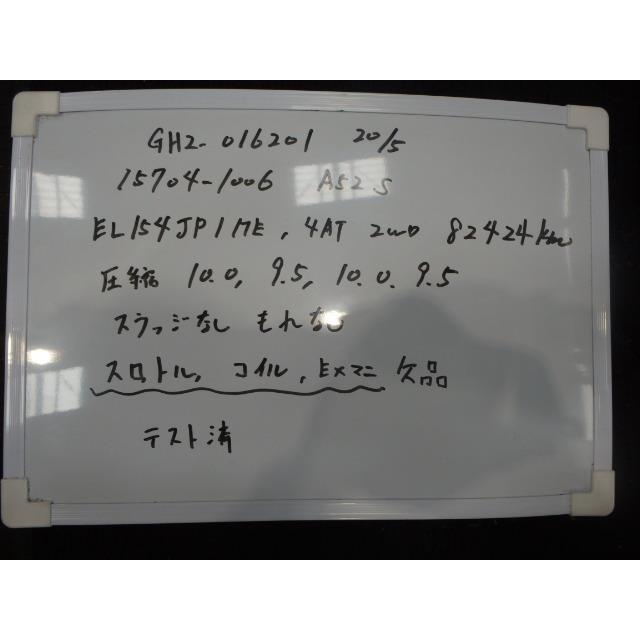 GH2-016201 20/5
15704-1006 A52S
EL154JP1ME, 4AT 2WD 82424km
圧縮 10.0, 9.5, 10.0. 9.5
スラッジなし もれなし
スロトル, コイル, Exマニ 欠品
テスト済